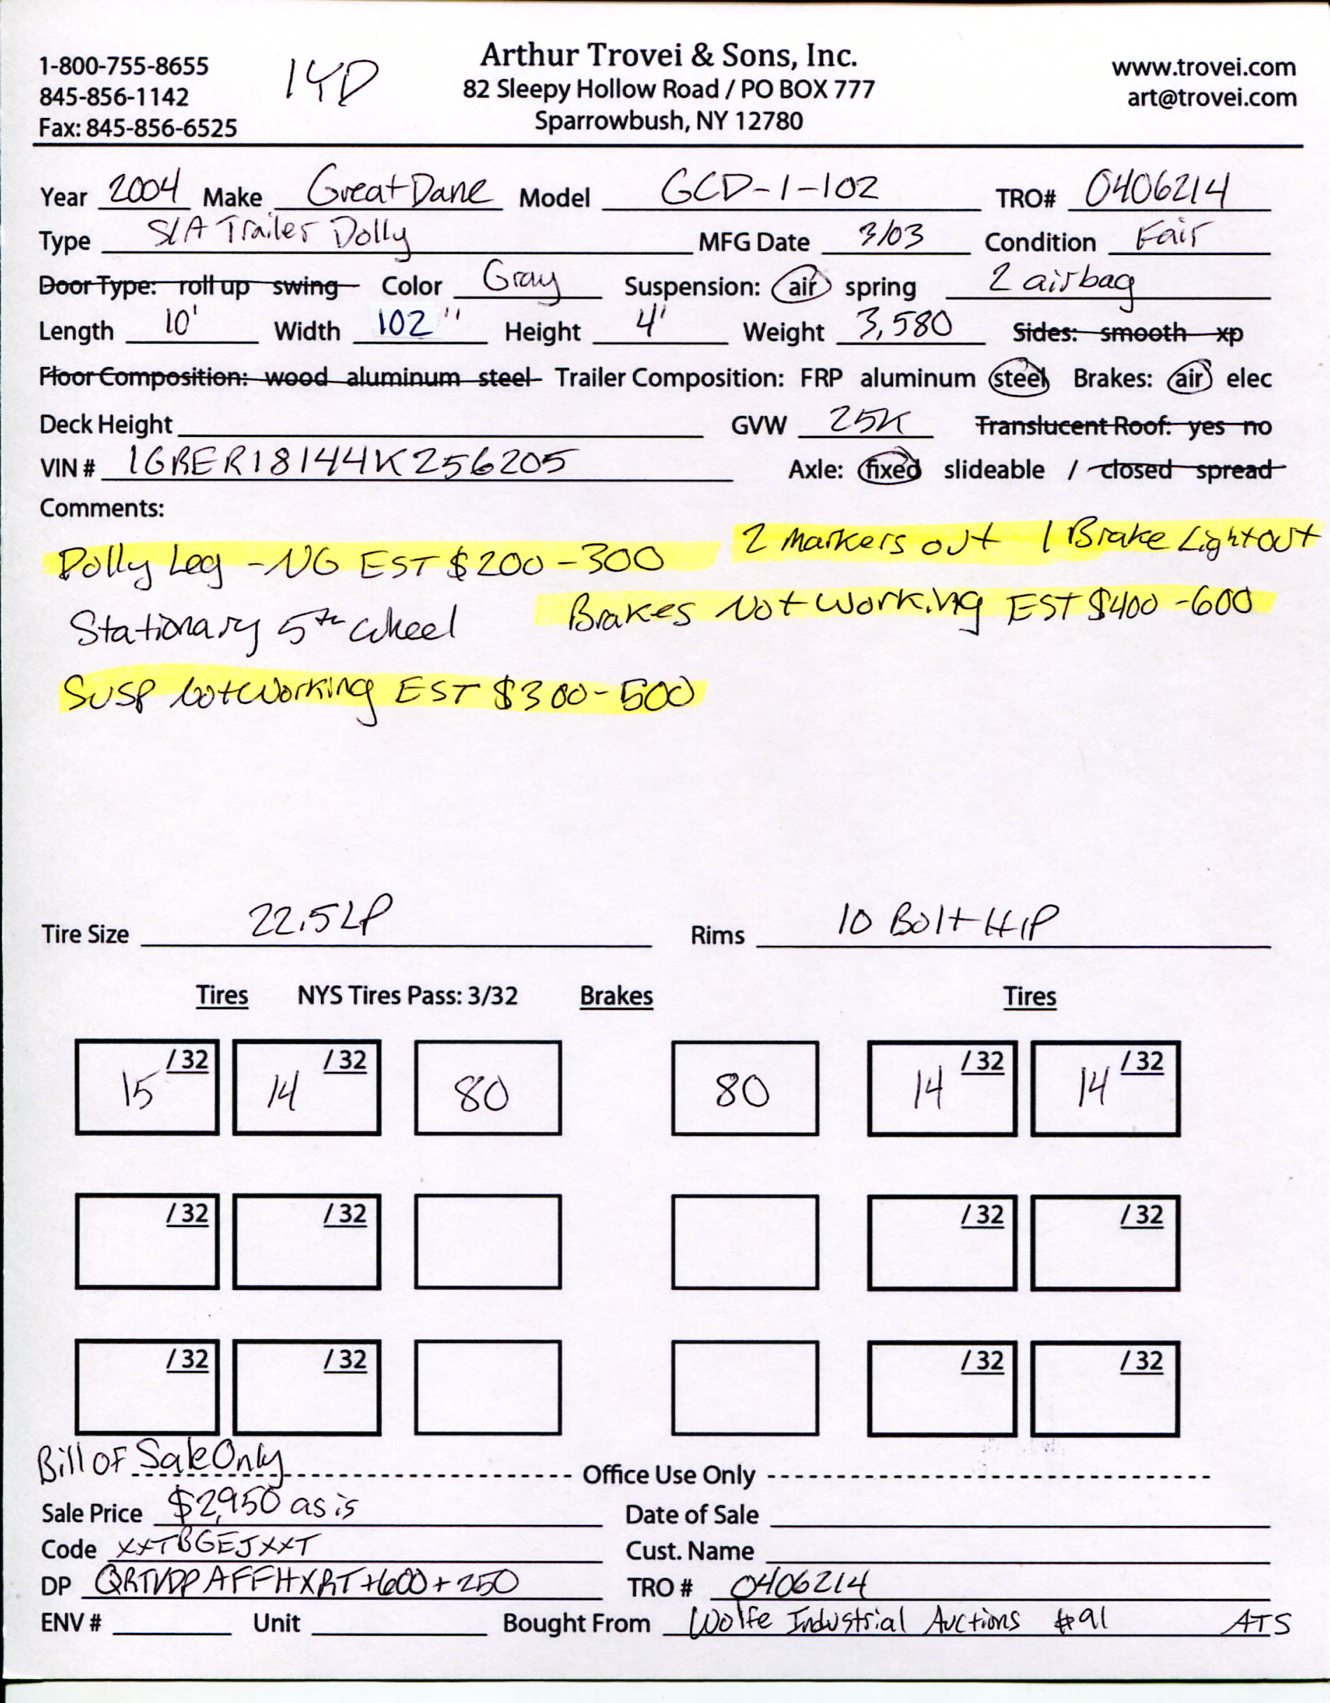 1-800-755-8655
845-856-1142
Fax: 845-856-6525
1YD
Arthur Trovei & Sons, Inc.
82 Sleepy Hollow Road / PO BOX 777
Sparrowbush, NY 12780
www.trovei.com
art@trovei.com
Year 2004 Make Great Dane Model GCD-1-102 TRO# 0406214
Type S/A Trailer Dolly MFG Date 3/03 Condition Fair
Door Type: roll up swing Color Gray Suspension: air spring 2 airbag
Length 10' Width 102" Height 4' Weight 3,580 Sides: smooth xp
Floor Composition: wood aluminum steel Trailer Composition: FRP aluminum steel Brakes: air elec
Deck Height GVW 25K Translucent Roof: yes no
VIN # 1GRER18144K256205 Axle: fixed slideable / closed spread
Comments:
Dolly Leg - NG EST $200-300 2 Markers out 1 Brake Light out
Stationary 5th wheel Brakes Not Working EST $400-600
Susp Not Working EST $300-500
Tire Size 22.5 LP Rims 10 Bolt H/P
Tires NYS Tires Pass: 3/32 Brakes Tires
15 /32 14 /32 80 80 14 /32 14 /32
/32 /32 /32 /32
/32 /32 /32 /32
Bill of Sale Only Office Use Only
Sale Price $2,950 as is Date of Sale
Code XXTBGEJXXT Cust. Name
DP +600+250 TRO # 0406214
ENV # Unit Bought From Wolfe Industrial Auctions #91 ATS